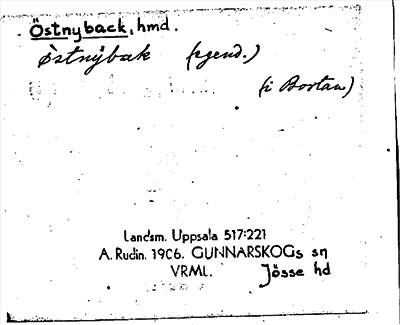 Östnyback, hmd.
östnỳbak (egend.)
(i Bortan)
Landsm. Uppsala 517:221
A. Rudin. 1906. GUNNARSKOGs sn
VRML. Jösse hd